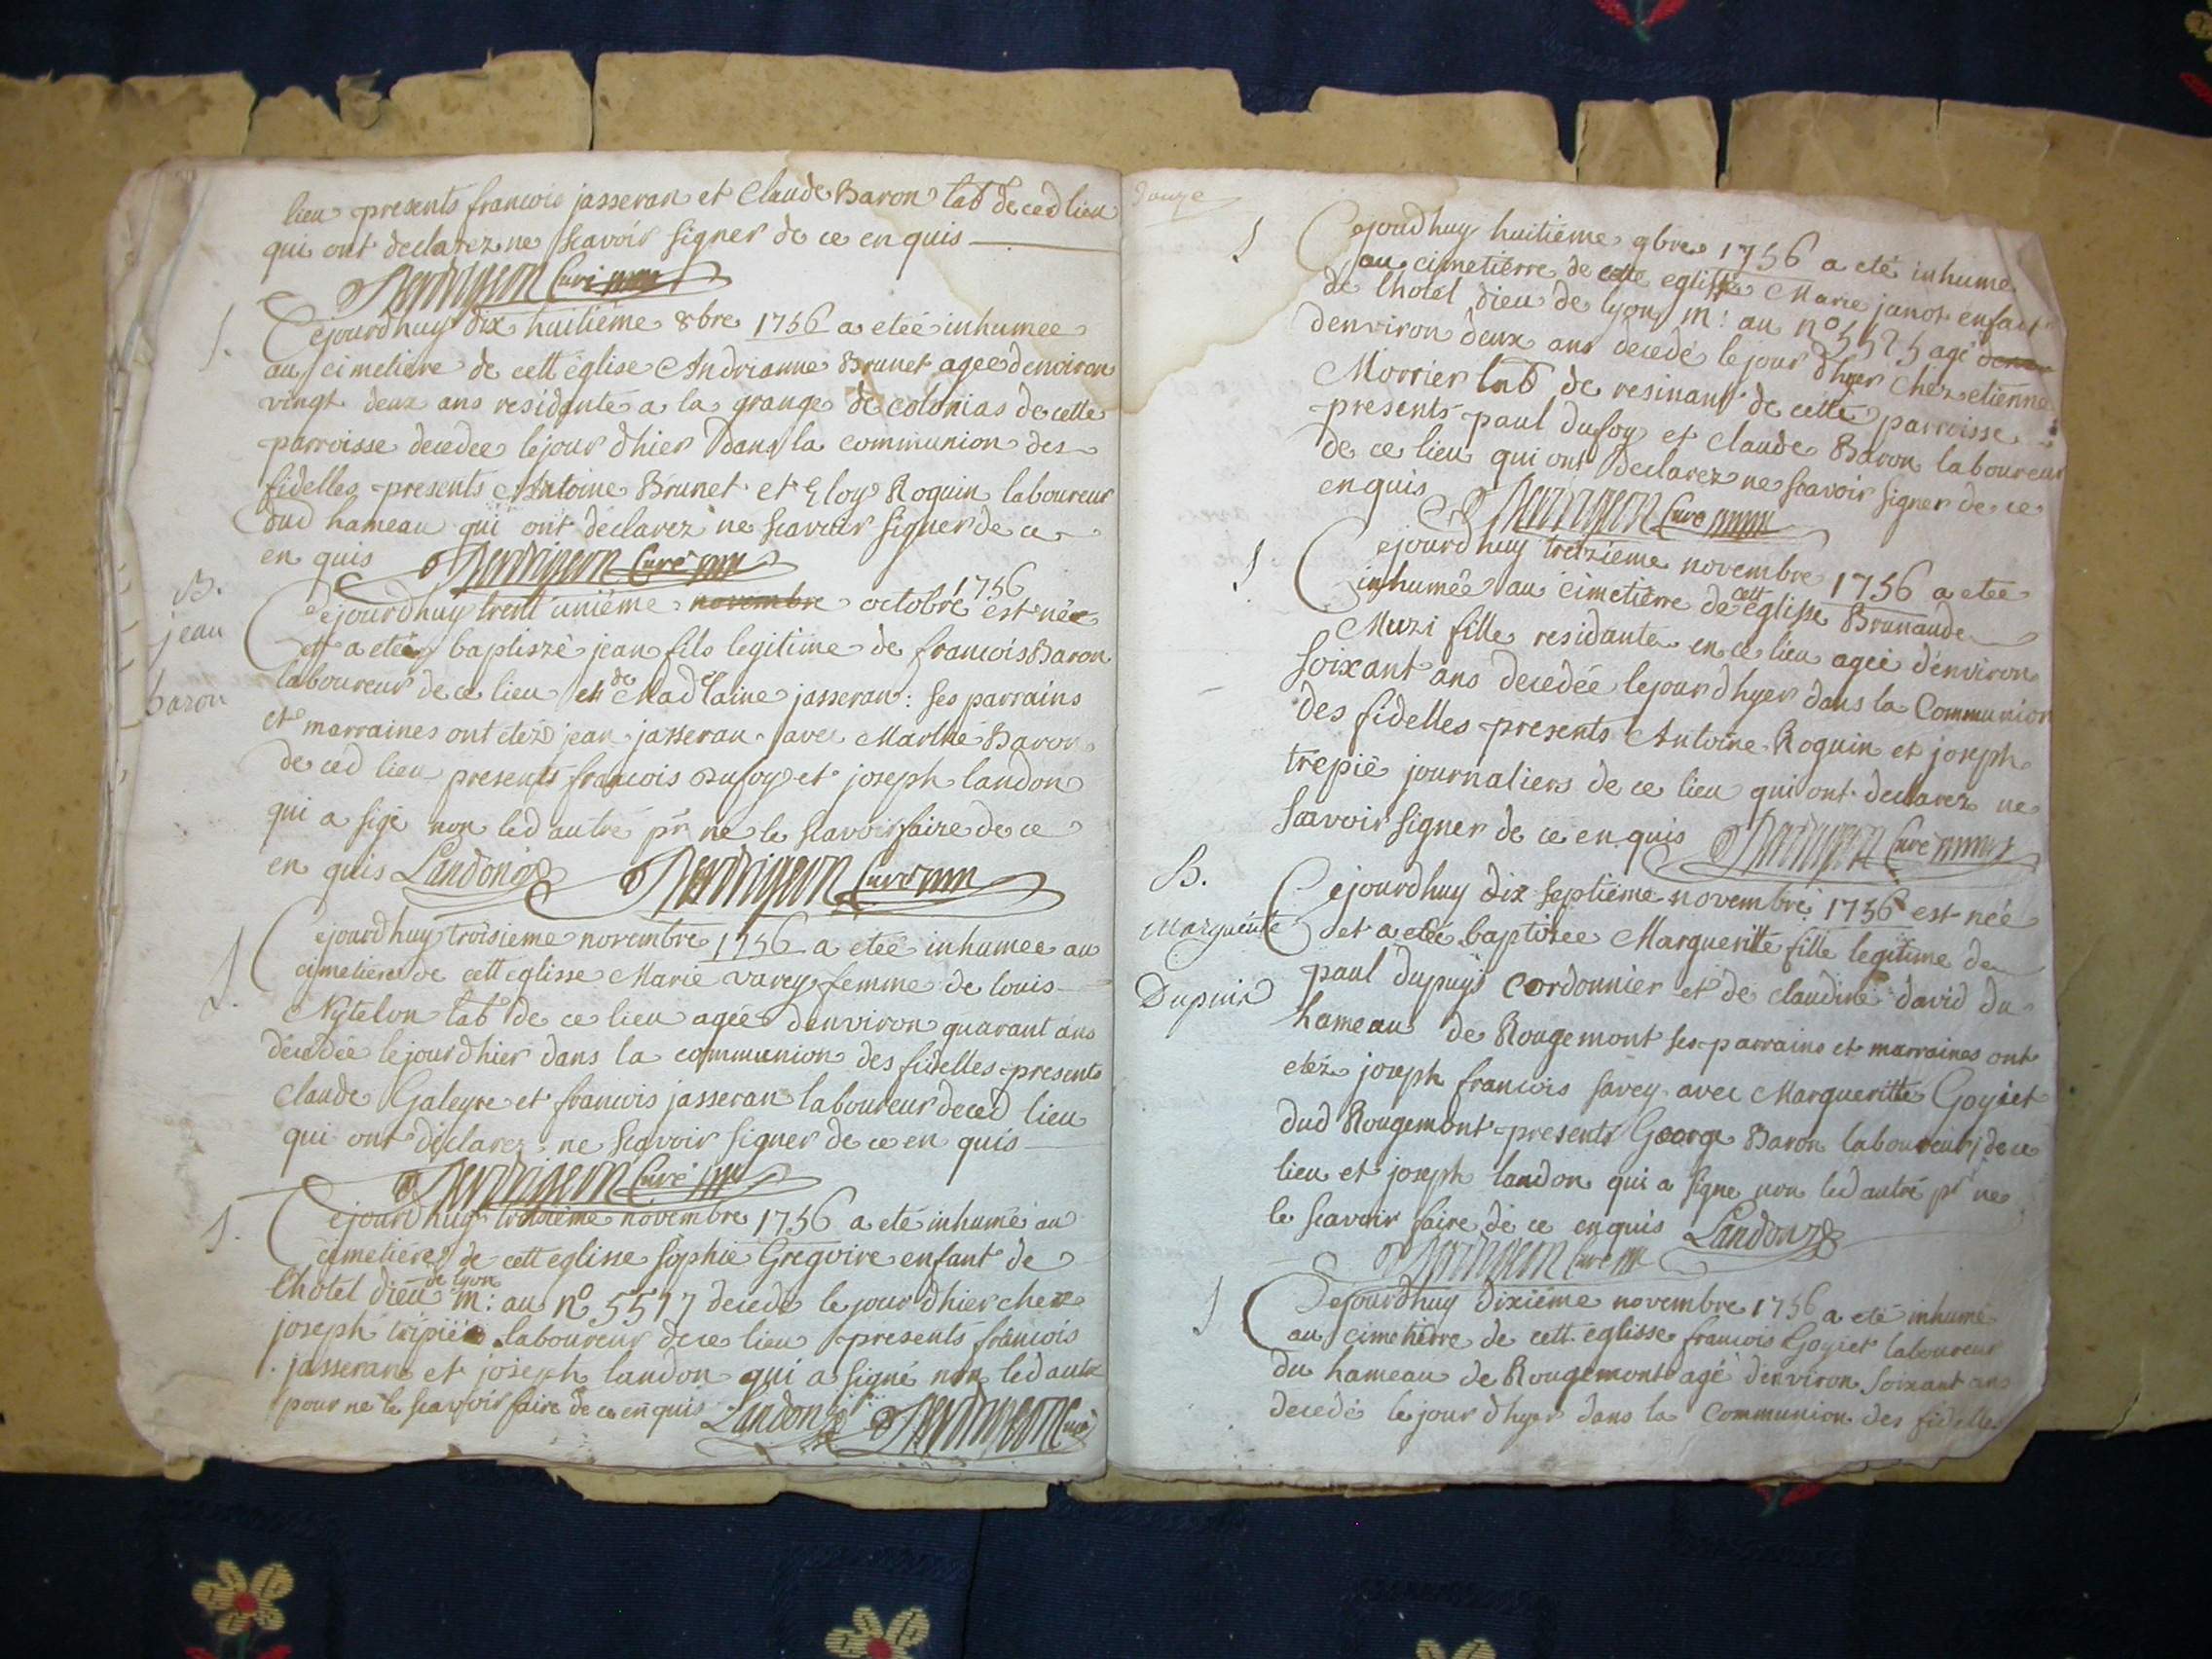 lieu presents francois jasseran et Claude Baron lab de ced lieu
qui ont declarez ne scavoir signer de ce en quis
Curé
S.
Cejourdhuy dix huitième 8bre 1756 a eteé inhumee
au cimetiere de cett église Andrianne Brunet agee denviron
vingt deux ans residante a la grange de colonias de cette
parroisse decedee lejour dhier dans la communion des
fidelles presents Antoine Brunet et Eloy Roquin laboureur
dud hameau qui ont déclarez ne scavoir signer de ce
en quis Curé
B.
jean
baron
Cejourdhuy trent unième novembre octobre 1756 est née
et a eteé baptiszé jean fils legitime de francois Baron
laboureur de ce lieu et de Madelaine jasseran : ses parrains
et marraines ont etez jean jasseran avec Marthe Baron
de ced lieu presents francois Dufoy et joseph landon
qui a sigé non led autre pr ne le scavoir faire de ce
en quis Landon Curé
S.
Cejourdhuy troisieme novembre 1756 a eteé inhumee au
cimetiere de cett eglisse Marie varey femme de louis
Nytelon lab de ce lieu agée denviron quarant ans
décedée lejourdhier dans la communion des fidelles presents
Claude Galeyre et francois jasseran laboureur deced lieu
qui ont déclarez ne scavoir signer de ce en quis
Curé
S.
Cejourdhuy troisième novembre 1756 a eté inhumé au
cimetiére de cett eglisse Sophie Gregoire enfant de
lhotel dieu de lyon m: au no 5517 decedé le jour dhier chez
joseph tripié laboureur de ce lieu presents francois
jasseran et joseph landon qui a signé non led autre
pour ne le scavoir faire de ce en quis Landon Curé
S
Cejourdhuy huitième 9bre 1756 a eté inhume
au cimetierre de cette eglisse Marie janot enfant
de lhotel dieu de lyon m: au no 5525 agé
denviron deux ans decedé le jour dhyer chez etienne
Morrier lab de resinans de cette parroisse
presents paul dufoy et claude Baron laboureur
de ce lieu qui ont declarez ne scavoir signer de ce
en quis Curé
S
Cejourdhuy treizieme novembre 1756 a eteé
inhumée au cimetierre de cett eglisse Brunaude
Muzi fille residante en ce lieu ageé d'environ
soixant ans decedée lejourdhyer dans la Communion
des fidelles presents Antoine Roquin et joseph
trepié journaliers de ce lieu qui ont declarez ne
scavoir signer de ce en quis Curé
B.
Marguerite
Dupuis
Cejourdhuy dix septième novembre 1756 est née
et a eteé baptisee Margueritte fille legitime de
paul dupuys cordonnier et de claudine david du
hameau de Rougemont ses parrains et marraines ont
etéz joseph francois savey avec Margueritte Goyiet
dud Rougemont presents George Baron laboureur de ce
lieu et joseph landon qui a signe non led autre pr ne
le scavoir faire de ce en quis Landon
Curé
S
Cejourdhuy dixiéme novembre 1756 a eté inhumé
au cimetierre de cett eglisse francois Goyiet laboureur
du hameau de Rougemont agé denviron soixant ans
decedé lejour dhyer dans la Communion des fidelles